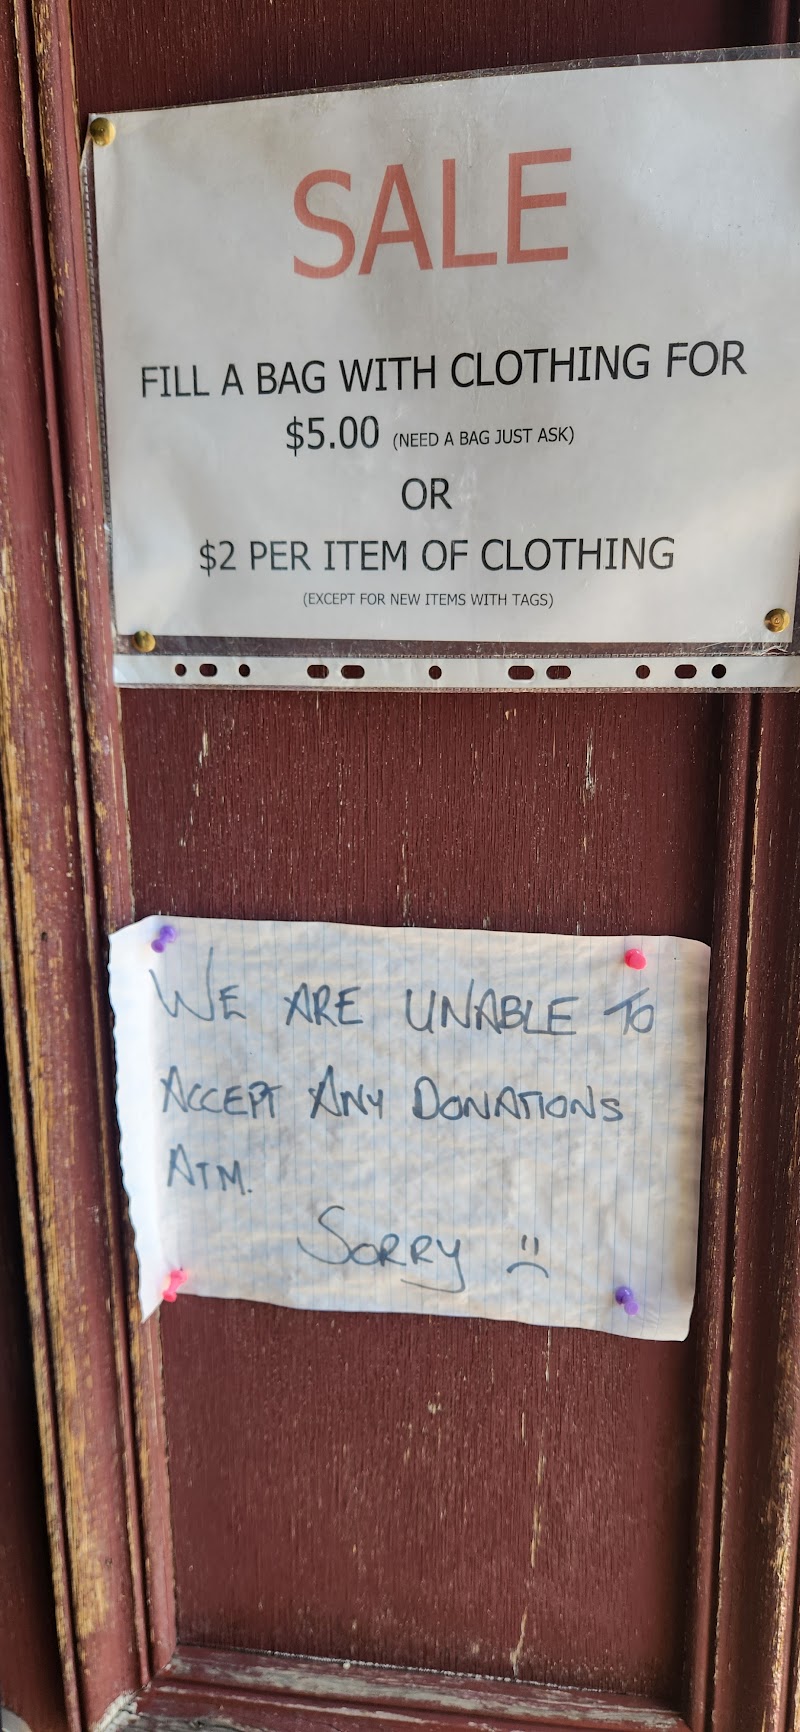 SALE
FILL A BAG WITH CLOTHING FOR
$5.00 (NEED A BAG JUST ASK)
OR
$2 PER ITEM OF CLOTHING
(EXCEPT FOR NEW ITEMS WITH TAGS)
WE ARE UNABLE TO
ACCEPT ANY DONATIONS
ATM.
SORRY :(